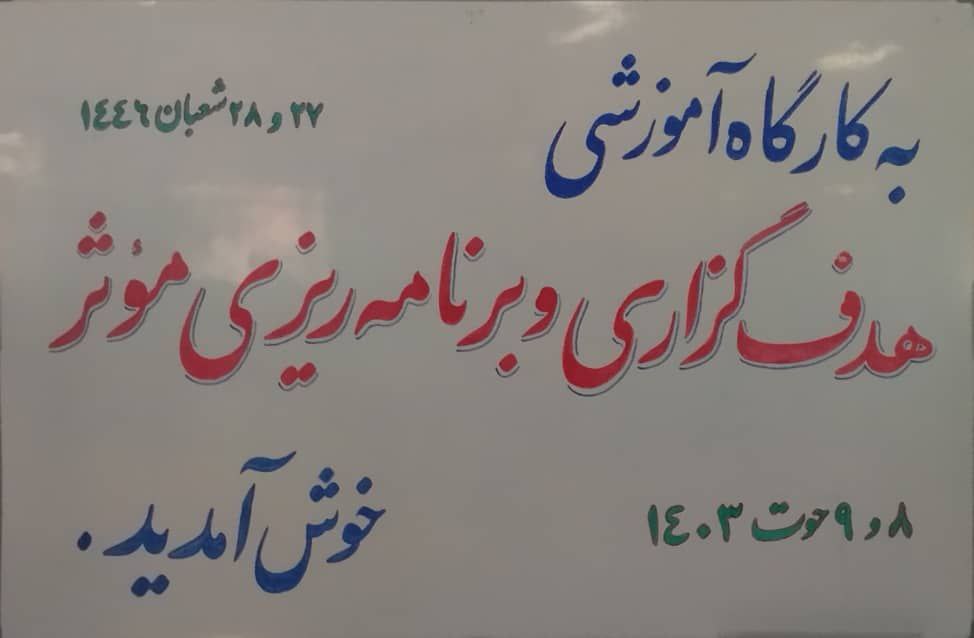 به کارگاه آموزشی
۲۷ و ۲۸ شعبان ۱٤٤٦
هدف گزاری و برنامه ریزی مؤثر
۸ و ۹ حوت ۱٤۰۳
خوش آمدید.